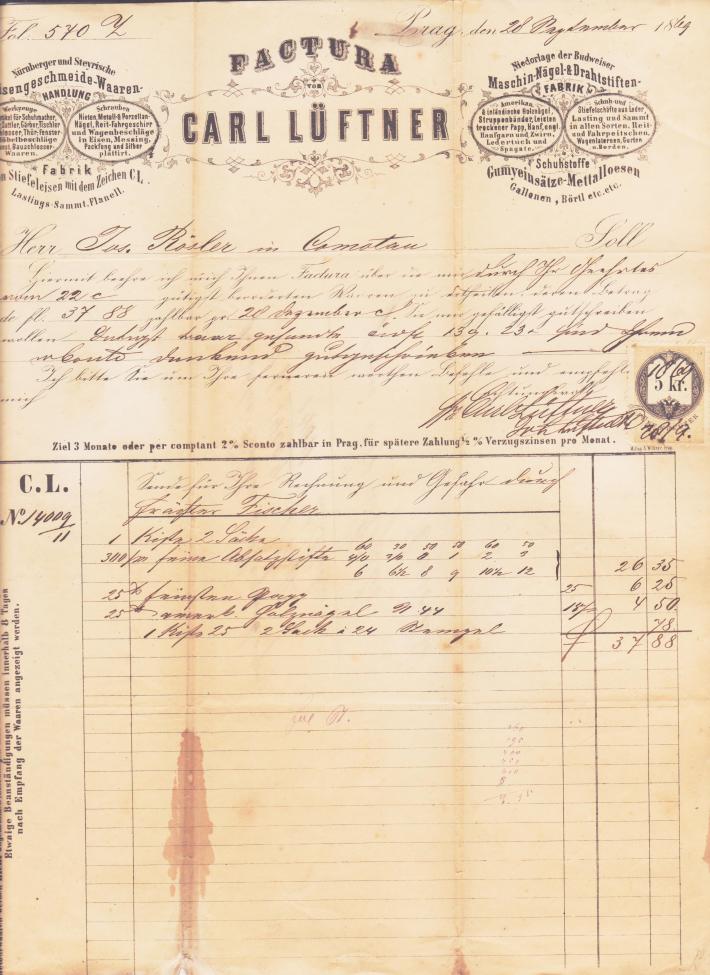 Fol. 540
Prag, den 28 September 1869
Nürnberger und Steyrische
Eisengeschmeide-Waaren-
HANDLUNG
Werkzeuge
für Schuhmacher,
Sattler, Gärber, Tischler
Schlosser, Thür-Fenster-
Möbelbeschläge
Bauschlosser-
Waaren.
Schrauben
Nieten, Metall-& Porcellan-
Nägel, Reit-Fahrgeschirr
und Wagenbeschläge
in Eisen, Messing,
Packfong und Silber
plattirt.
Fabrik
von Stiefeleisen mit dem Zeichen C L.
Lastings-Sammt, Flanell.
FACTURA
von
CARL LÜFTNER
Niederlage der Budweiser
Maschin-Nägel-& Drahtstiften-
FABRIK
Amerikan.
& inländische Holznägel
Struppenbänder, Leisten
trockener Papp, Hanf, engl.
Hanfgarn und Zwirn,
Ledertuch und
Spagate.
Schuh-und
Stiefelschäfte aus Leder
Lasting und Sammt
in allen Sorten. Reit-
und Fahrpeitschen,
Wagenlaternen, Gurten
u. Borden.
Schuhstoffe
Gumyeinsätze-Mettalloesen
Gallonen, Börtl etc. etc.
Herr Jos. Rösler in Comotau Soll
Hiermit beehre ich mich Ihnen Factura über die mir durch Ihr Geehrtes
vom 22 c gütigst beorderten Waaren zu ertheilen, deren Betrag
de fl. 37 88 zahlbar pr 28 Dezember c. Sie mir gefälligst gutschreiben
wollen. gesandte 139. 23. sind Ihnem
a Conto dankend gutgeschrieben
Ich bitte Sie um Ihre ferneren werthen Befehle und empfehle
mich
Achtungsvoll
Carl Lüftner
1869
5 kr.
28/9.
Ziel 3 Monate oder per comptant 2% Sconto zahlbar in Prag, für spätere Zahlung ½ % Verzugszinsen pro Monat.
C.L.
No. 14009
11
Sende für Ihre Rechnung und Gefahr durch
Frächter Fischer
1 Kiste 2 Säcke
60 30 50 50 60 50
300/m feine Absatzstifte 4/0 3/0 0 1 2 3
6 6½ 8 9 10½ 12 26 35
25 feinsten Papp 25 6 25
25 amerk. Holznägel 44 18 4 50
1 Kiste 25 2 Sack à 24 Stempel 78
37 88
Etwaige Beanständigungen müssen innerhalb 8 Tagen
nach Empfang der Waaren angezeigt werden.